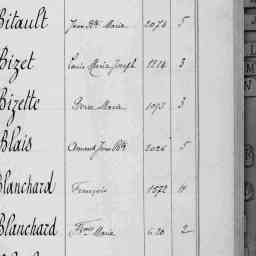 Bitault Jean Bte Marie 2074 5
Bizet Louis Marie Joseph 1214 3
Bizette Pierre Marie 1093 3
Blais Amand Jean Bte 2026 5
Blanchard François 1572 4
Blanchard Fçois Marie 620 2